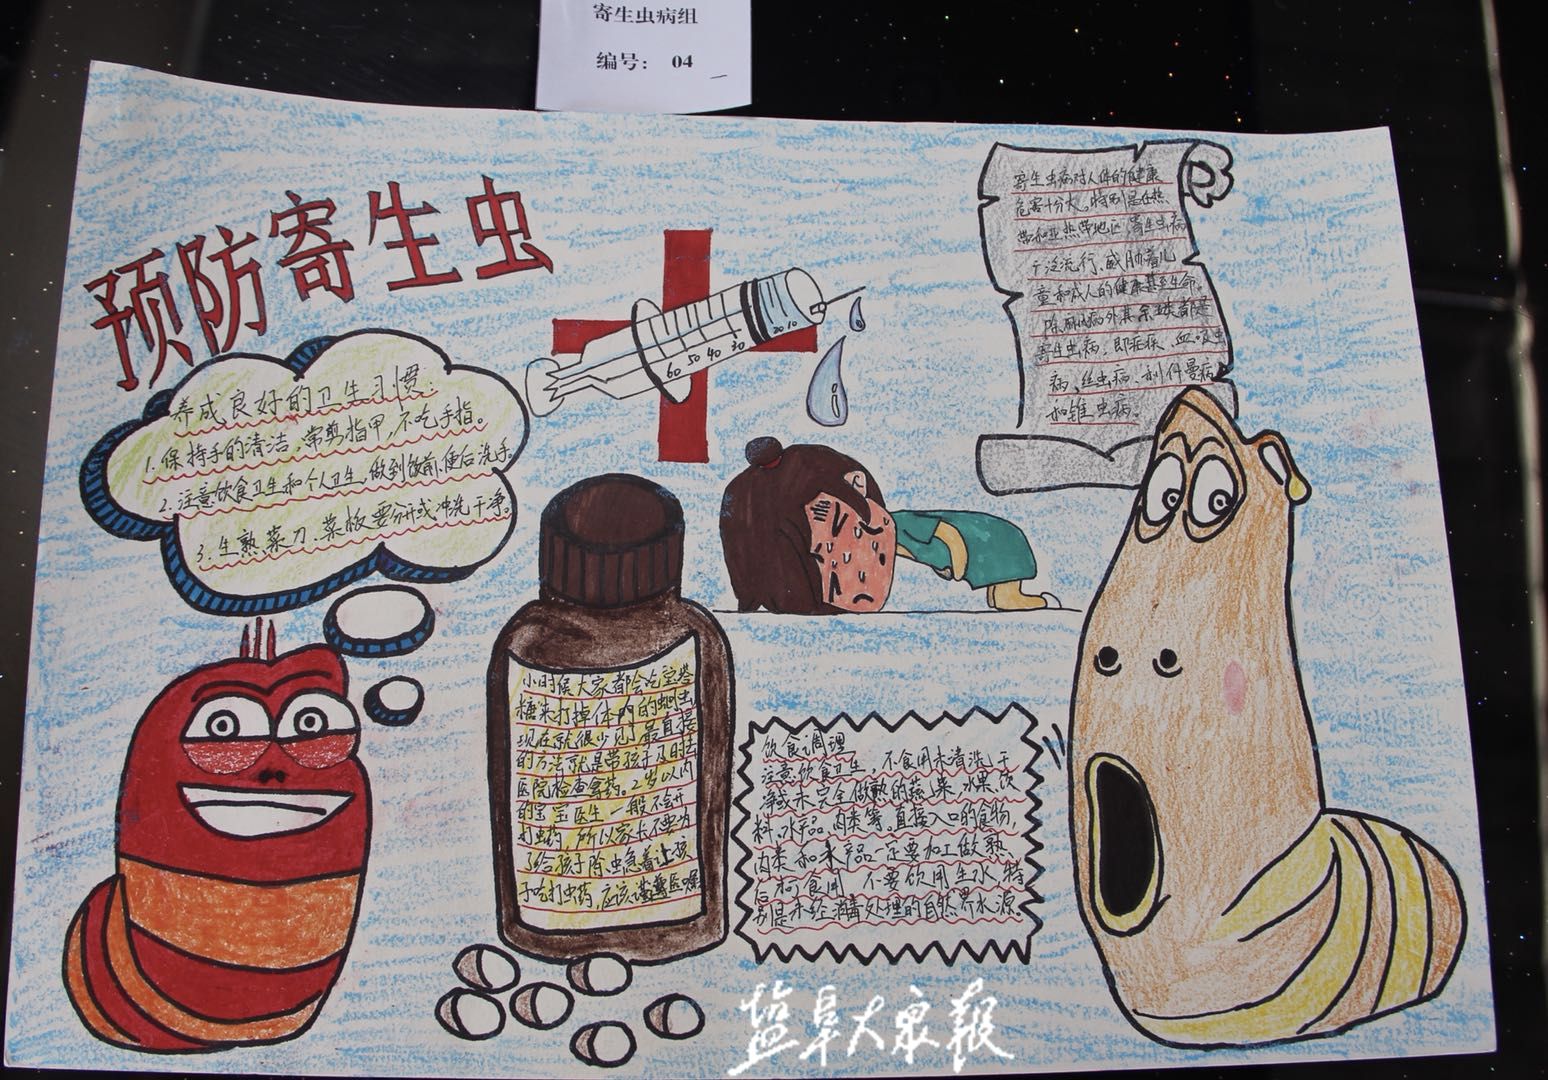 寄生虫病组
编号： 04
预防寄生虫
养成良好的卫生习惯：
1. 保持手的清洁，常剪指甲，不吃手指。
2. 注意饮食卫生和个人卫生，做到饭前、便后洗手。
3. 生熟菜刀、菜板要分开或冲洗干净。
60 50 40 30 20 10
寄生虫病对人体的健康
危害十分大，特别是在热
带和亚热带地区，寄生虫病
广泛流行，威胁着儿
童和成人的健康甚至生命。
除
病外其余
都是
寄生虫病，即疟疾、血吸虫
病、丝虫病、利什曼病
如锥虫病。
小时候大家都会吃宝塔
糖来打掉体内的蛔虫
现在就很少见了，最直接
的方法就是带孩子及时去
医院检查拿药。2岁以内
的宝宝医生一般不会开
打虫药，所以家长不要为
了给孩子除虫急着让孩
子吃打虫药，应该谨遵医嘱
饮食调理
注意饮食卫生，不食用未清洗干
净或未完全做熟的蔬菜、水果、饮
料、水产品、肉类等。直接入口的食物，
肉类和水产品一定要加工做熟
后可食用，不要饮用生水，特
别是未经消毒处理的自然界水源。
盐阜大众报